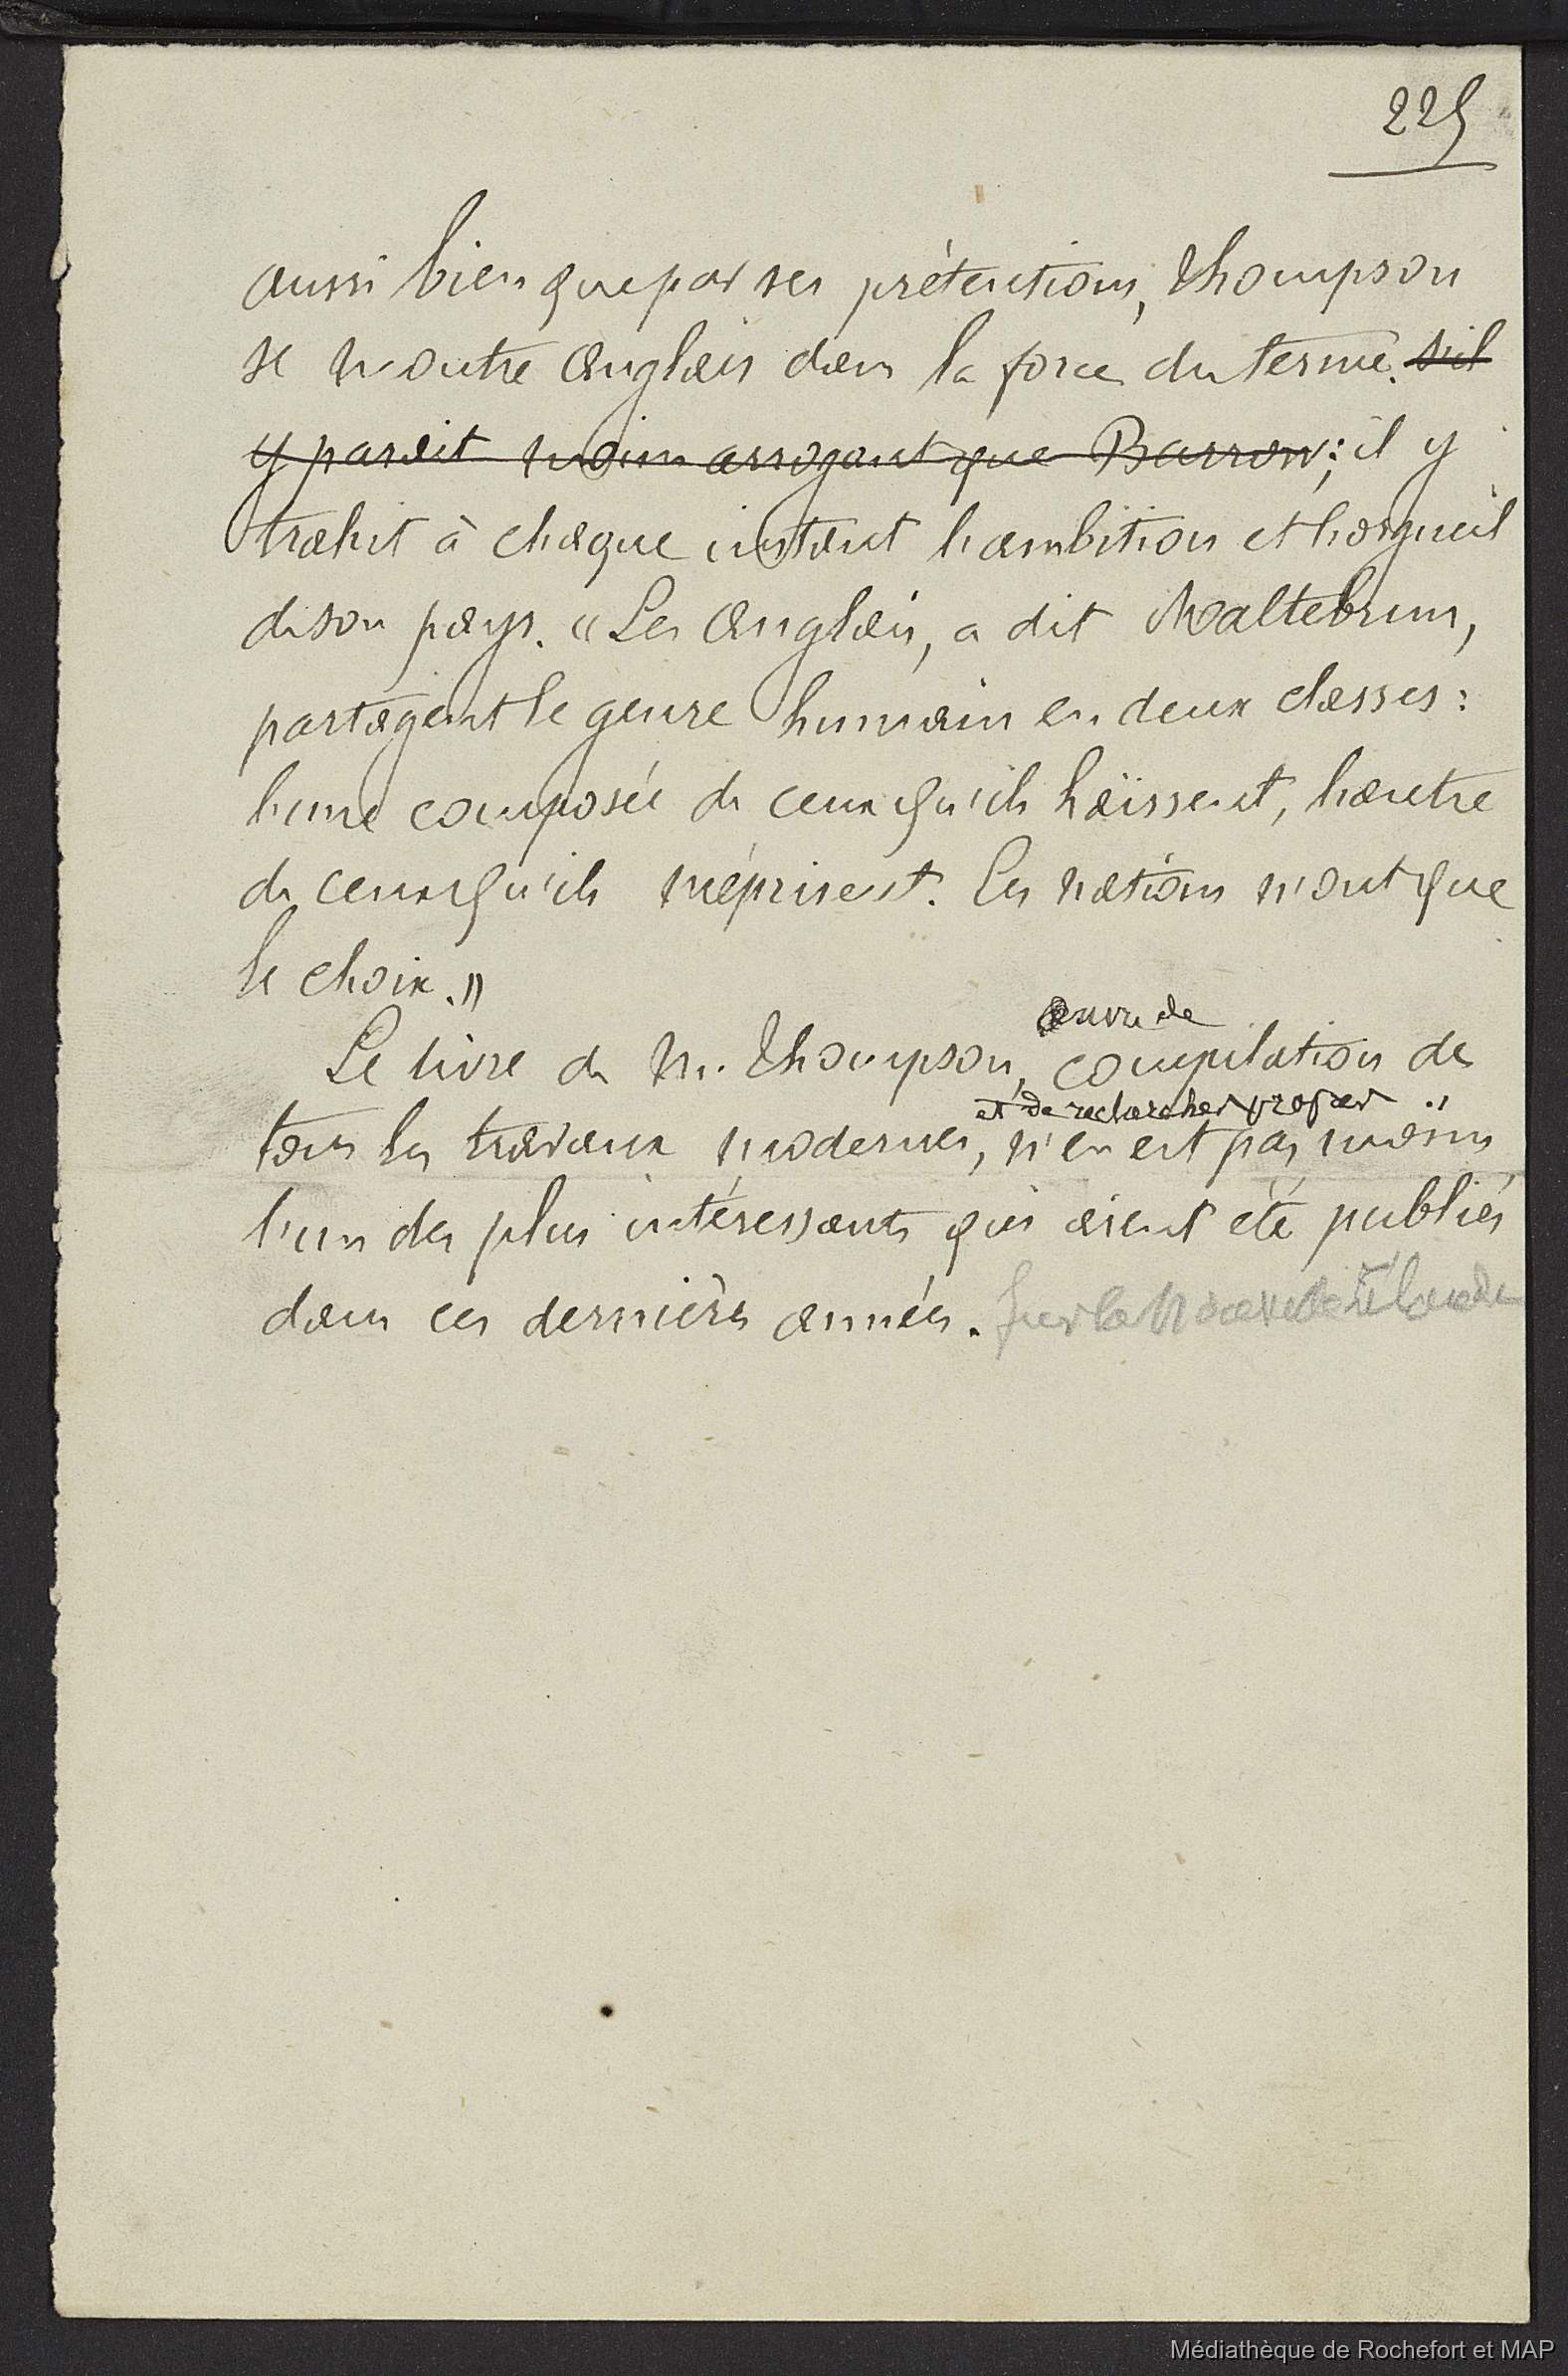 225
aussi bien que par ses prétentions, Thompson
se montre Anglais dans la force du terme. s'il
y paraît moins arrogant que Barrow; il y
trahit à chaque instant l'ambition et l'orgueil
de son pays. « Les Anglais, a dit Maltebrun,
partagent le genre humain en deux classes :
l'une composée de ceux qu'ils haïssent, l'autre
de ceux qu'ils méprisent. Les nations n'ont que
le choix. »
œuvre de
Le livre de M. Thompson, compilation de
et de recherches propres
tous les travaux modernes, n'en est pas moins
l'un des plus intéressants qui aient été publiés
dans ces dernières années. sur la Nouvelle Zélande
Médiathèque de Rochefort et MAP